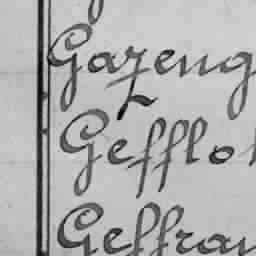 Gazeng
Gefflo
Geffran